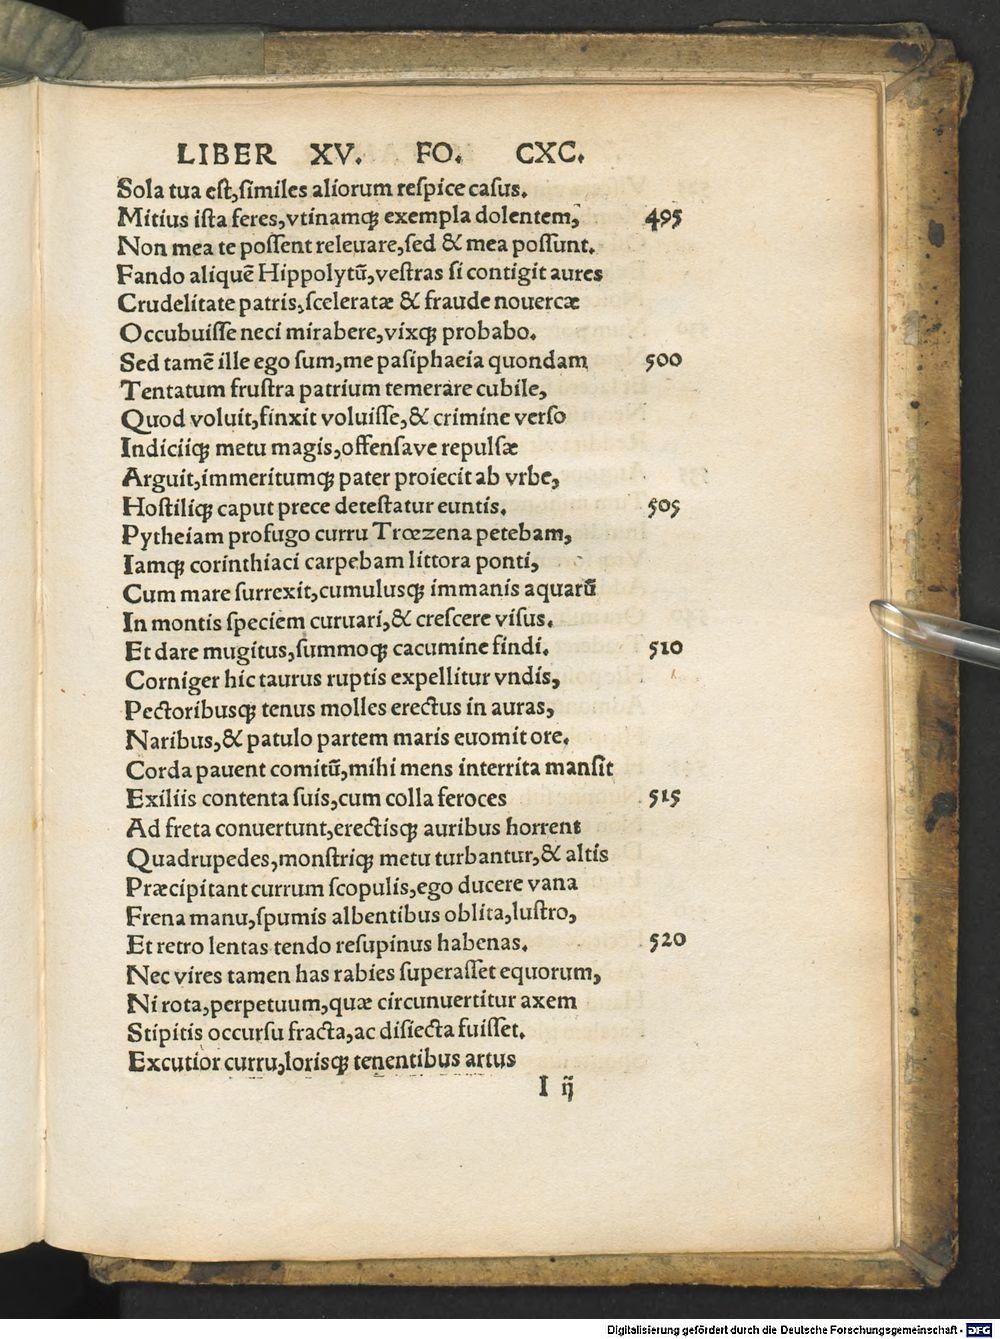 LIBER XV. FO. CXC.
Sola tua est, similes aliorum respice casus.
Mitius ista feres, vtinamqꝫ exempla dolentem, 495
Non mea te possent releuare, sed & mea possunt.
Fando aliquē Hippolytū, vestras si contigit aures
Crudelitate patris, sceleratæ & fraude nouercæ
Occubuisse neci mirabere, vixqꝫ probabo.
Sed tamē ille ego sum, me pasiphaeia quondam 500
Tentatum frustra patrium temerare cubile,
Quod voluit, finxit voluisse, & crimine verso
Indiciiqꝫ metu magis, offensave repulsæ
Arguit, immeritumqꝫ pater proiecit ab vrbe,
Hostiliqꝫ caput prece detestatur euntis. 505
Pytheiam profugo curru Trœzena petebam,
Iamqꝫ corinthiaci carpebam littora ponti,
Cum mare surrexit, cumulusqꝫ immanis aquarū
In montis speciem curuari, & crescere visus.
Et dare mugitus, summoqꝫ cacumine findi. 510
Corniger hic taurus ruptis expellitur vndis,
Pectoribusqꝫ tenus molles erectus in auras,
Naribus, & patulo partem maris euomit ore.
Corda pauent comitū, mihi mens interrita mansit
Exiliis contenta suis, cum colla feroces 515
Ad freta conuertunt, erectisqꝫ auribus horrent
Quadrupedes, monstriqꝫ metu turbantur, & altis
Præcipitant currum scopulis, ego ducere vana
Frena manu, spumis albentibus oblita, lustro,
Et retro lentas tendo resupinus habenas. 520
Nec vires tamen has rabies superasset equorum,
Ni rota, perpetuum, quæ circunuertitur axem
Stipitis occursu fracta, ac disiecta fuisset.
Excutior curru, lorisqꝫ tenentibus artus
I ij
Digitalisierung gefördert durch die Deutsche Forschungsgemeinschaft - DFG